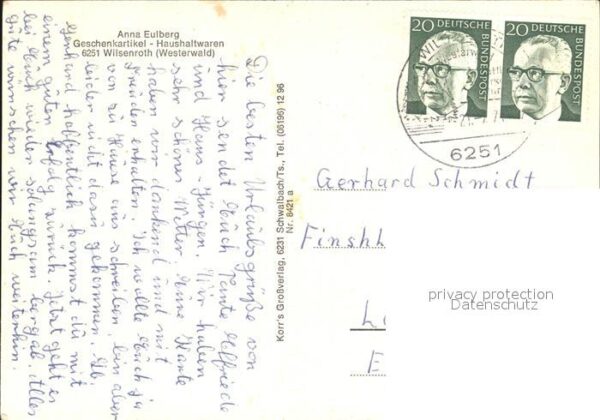 Anna Eulberg
Geschenkartikel - Haushaltwaren
6251 Wilsenroth (Westerwald)
Die besten Urlaubsgrüße von
hier sendet Euch Tante Elfriede
und Hans-Jürgen. Wir haben
sehr schönes Wetter. Eine Karte
haben wir dankend und mit
Freuden erhalten. Ich wollte Euch ja
von zu Hause aus schreiben, bin aber
leider nicht dazu gekommen. Lb.
Gerhard hoffentlich kommst du mit
einem guten Erfolg zurück. Jetzt geht es
bei Euch wieder solangsam bergab. Alles
Gute wünschen wir Euch weiterhin.
Korr's Großverlag, 6231 Schwalbach/Ts., Tel. (06196) 12 96
Nr. 8421 a
20 DEUTSCHE BUNDESPOST
20 DEUTSCHE BUNDESPOST
6251
Gerhard Schmidt
Finshl
L
E
privacy protection
Datenschutz